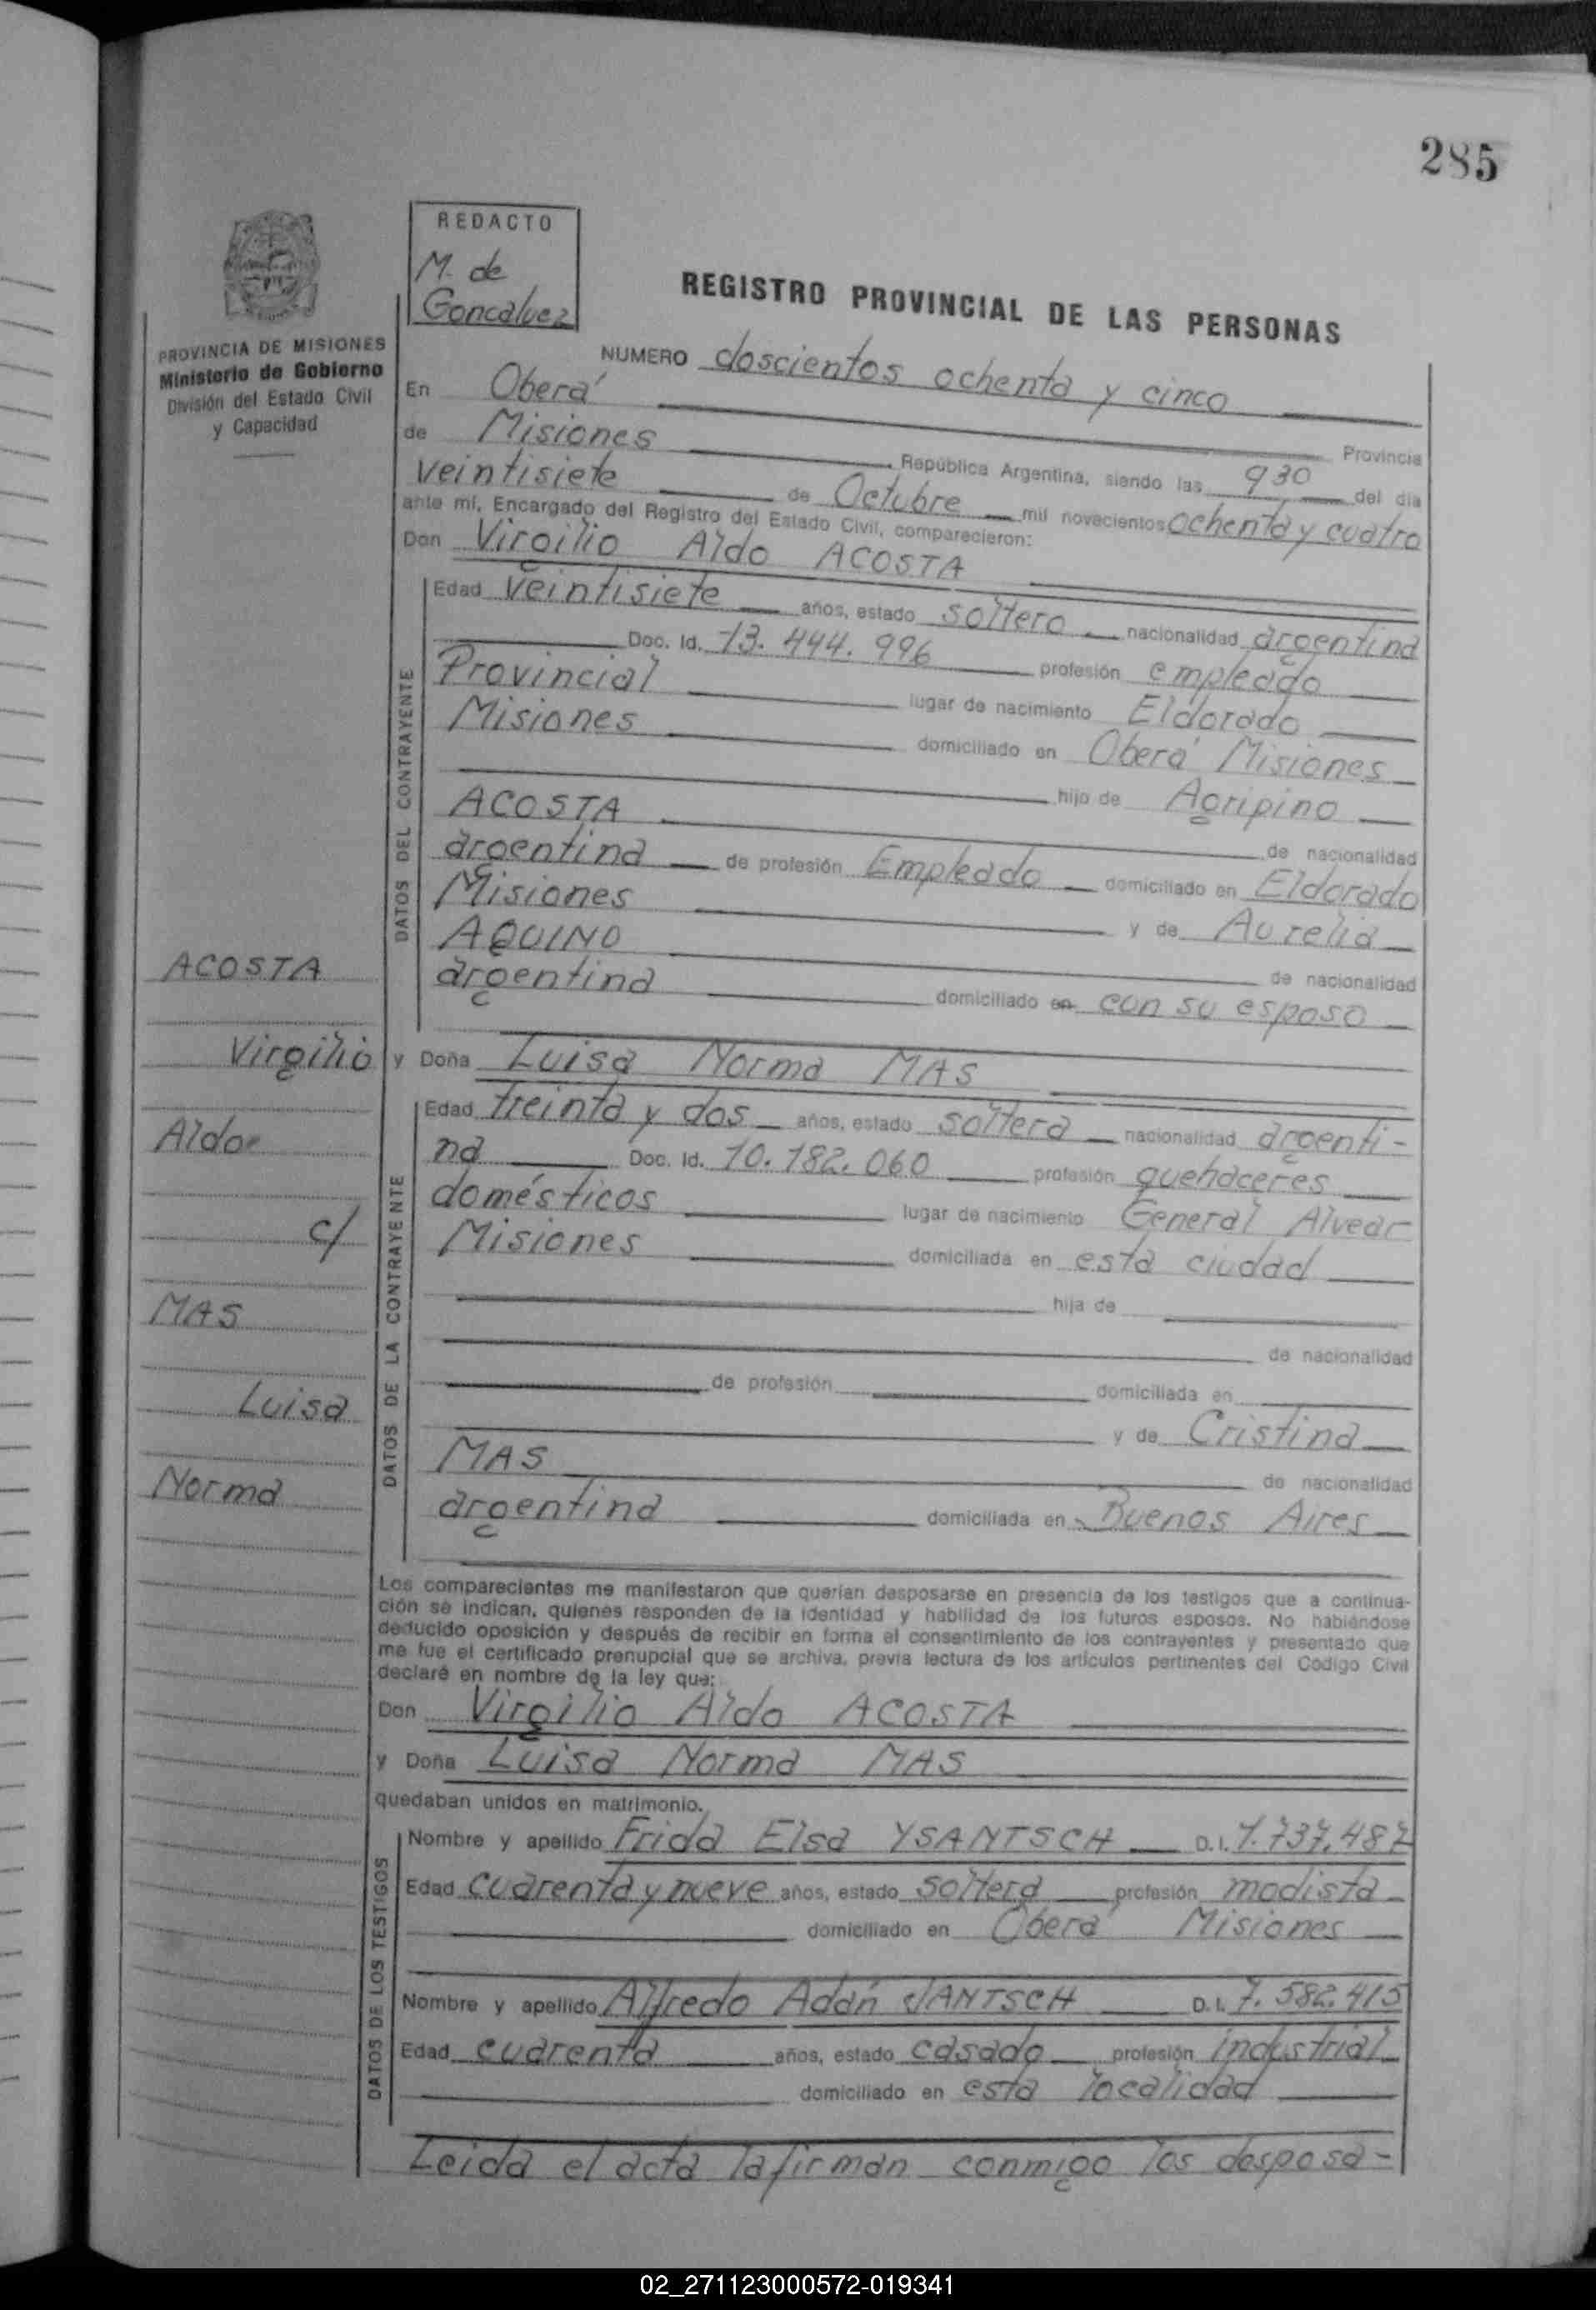 285
REDACTO
M. de
Goncalvez
PROVINCIA DE MISIONES
Ministerio de Gobierno
División del Estado Civil
y Capacidad
REGISTRO PROVINCIAL DE LAS PERSONAS
NUMERO doscientos ochenta y cinco
En Oberá
Provincia
de Misiones República Argentina, siendo las 9 30 del día
veintisiete de Octubre mil novecientos ochenta y cuatro
ante mí, Encargado del Registro del Estado Civil, comparecieron:
Don Virgilio Aldo ACOSTA
DATOS DEL CONTRAYENTE
Edad veintisiete años, estado soltero nacionalidad argentina
Doc. Id. 13.444.996 profesión empleado
Provincial lugar de nacimiento Eldorado
Misiones domiciliado en Oberá Misiones
hijo de Agripino
ACOSTA de nacionalidad
argentina de profesión Empleado domiciliado en Eldorado
Misiones y de Aurelia
AQUINO de nacionalidad
argentina domiciliado en con su esposo
y Doña Luisa Norma MAS
DATOS DE LA CONTRAYENTE
Edad treinta y dos años, estado soltera nacionalidad argenti-
na Doc. Id. 10.182.060 profesión quehaceres
domésticos lugar de nacimiento General Alvear
Misiones domiciliada en esta ciudad
hija de
de nacionalidad
de profesión domiciliada en
y de Cristina
MAS de nacionalidad
argentina domiciliada en Buenos Aires
ACOSTA
Virgilio
Aldo
c/
MAS
Luisa
Norma
Los comparecientes me manifestaron que querían desposarse en presencia de los testigos que a continua-
ción se indican, quienes responden de la identidad y habilidad de los futuros esposos. No habiéndose
deducido oposición y después de recibir en forma el consentimiento de los contrayentes y presentado que
me fue el certificado prenupcial que se archiva, previa lectura de los artículos pertinentes del Código Civil
declaré en nombre de la ley que:
Don Virgilio Aldo ACOSTA
y Doña Luisa Norma MAS
quedaban unidos en matrimonio.
DATOS DE LOS TESTIGOS
Nombre y apellido Frida Elsa YSANTSCH D.I. 1.737.487
Edad cuarenta y nueve años, estado soltera profesión modista
domiciliado en Oberá Misiones
Nombre y apellido Alfredo Adán JANTSCH D.I. 7.582.415
Edad cuarenta años, estado casado profesión industrial
domiciliado en esta localidad
Leida el acta la firman conmigo los desposa-
02_271123000572-019341